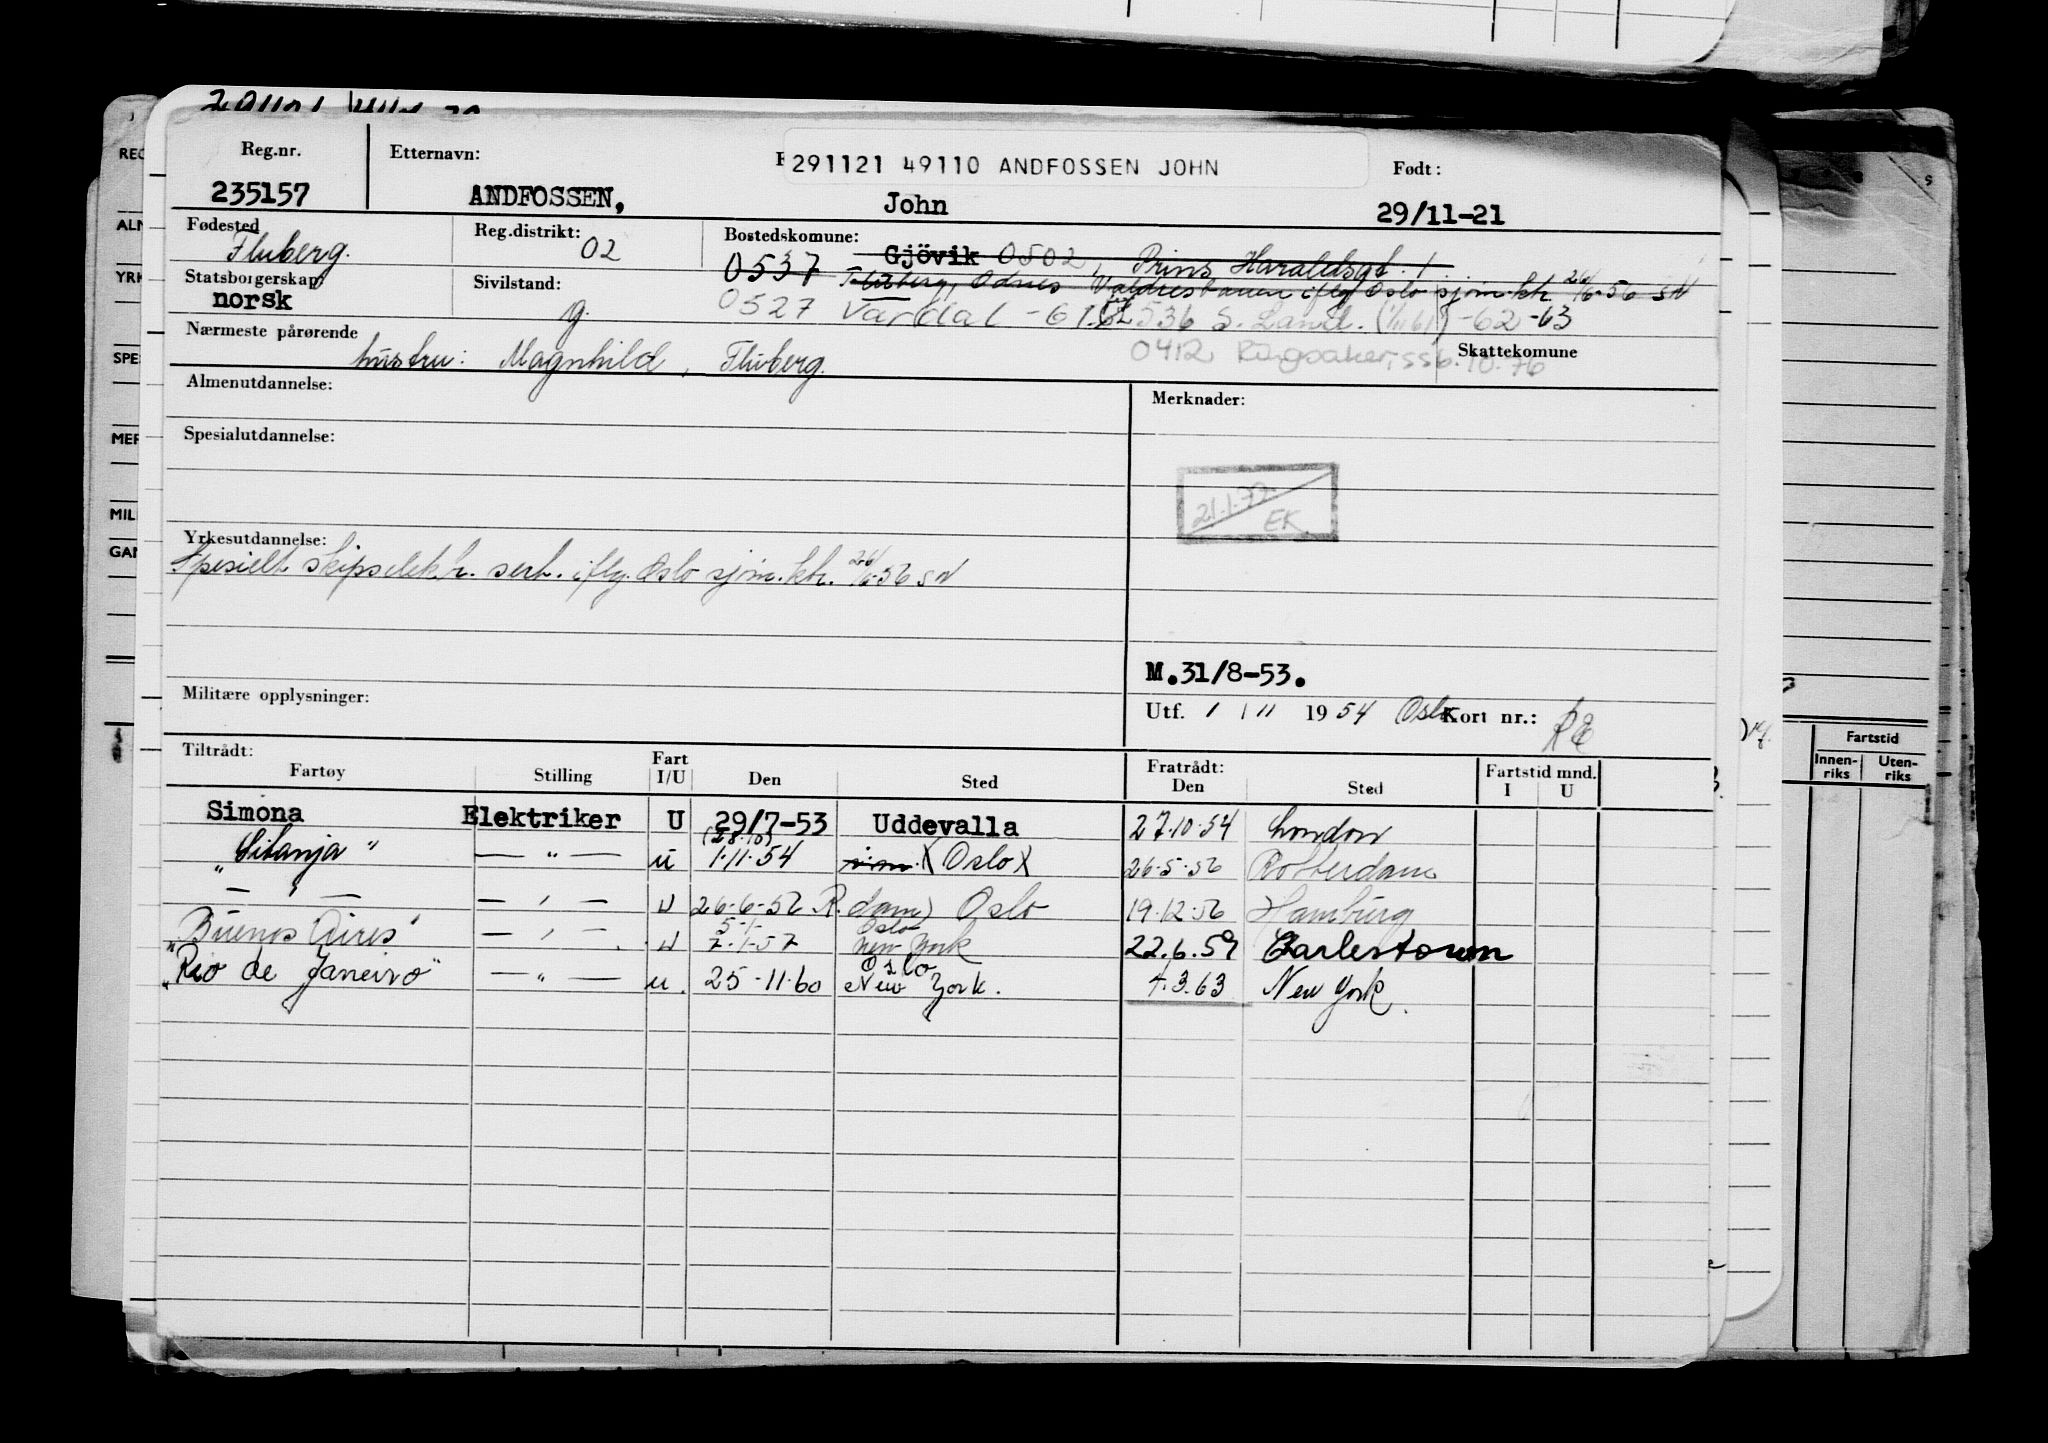 Reg.nr. Etternavn: 291121 49110 ANDFOSSEN JOHN Født:
235157 ANDFOSSEN, John 29/11-21
Fødested Reg.distrikt: Bostedskomune:
Fluberg. 02 Gjövik 0502, Prins Haraldsgt. 1
Statsborgerskap Sivilstand: 0537 Fluberg, Odnes Valdresbanen iflg Oslo sjøm.ktr. 26/6-56 SN
norsk g. 0527 Vardal -61 536 S. Land. (1/11 61) -62-63
Nærmeste pårørende 0412 Ringsaker, ssb. 10.76 Skattekomune
hustru: Magnhild, Fluberg.
Almenutdannelse: Merknader:
Spesialutdannelse:
21.1.72
EK
Yrkesutdannelse:
Spesielt skipselektr. sert. iflg. Oslo sjøm.ktr. 26/6-56 SN
M.31/8-53.
Militære opplysninger:
Utf. 1/11 1954 Oslo Kort nr.: RE
Tiltrådt: Fart Fratrådt: Fartstid mnd.
Fartøy Stilling I/U Den Sted Den Sted I U
Simona Elektriker U 29/7-53 Uddevalla 27.10.54 London
(28.10)
"Sitanja" — " — U 1.11.54 (Oslo) 26.5.56 Rotterdam
— " — — " — U 26-6-56 R.dam) Oslo 19.12.56 Hamburg
5-1 Oslo
"Buenos Aires" — " — U 7-1-57 New York 22.6.59 Carlestown
Oslo
"Rio de Janeiro" — " — U. 25-11-60 New York. 4.3.63 New York.
Fartstid
Innen-riks Uten-riks